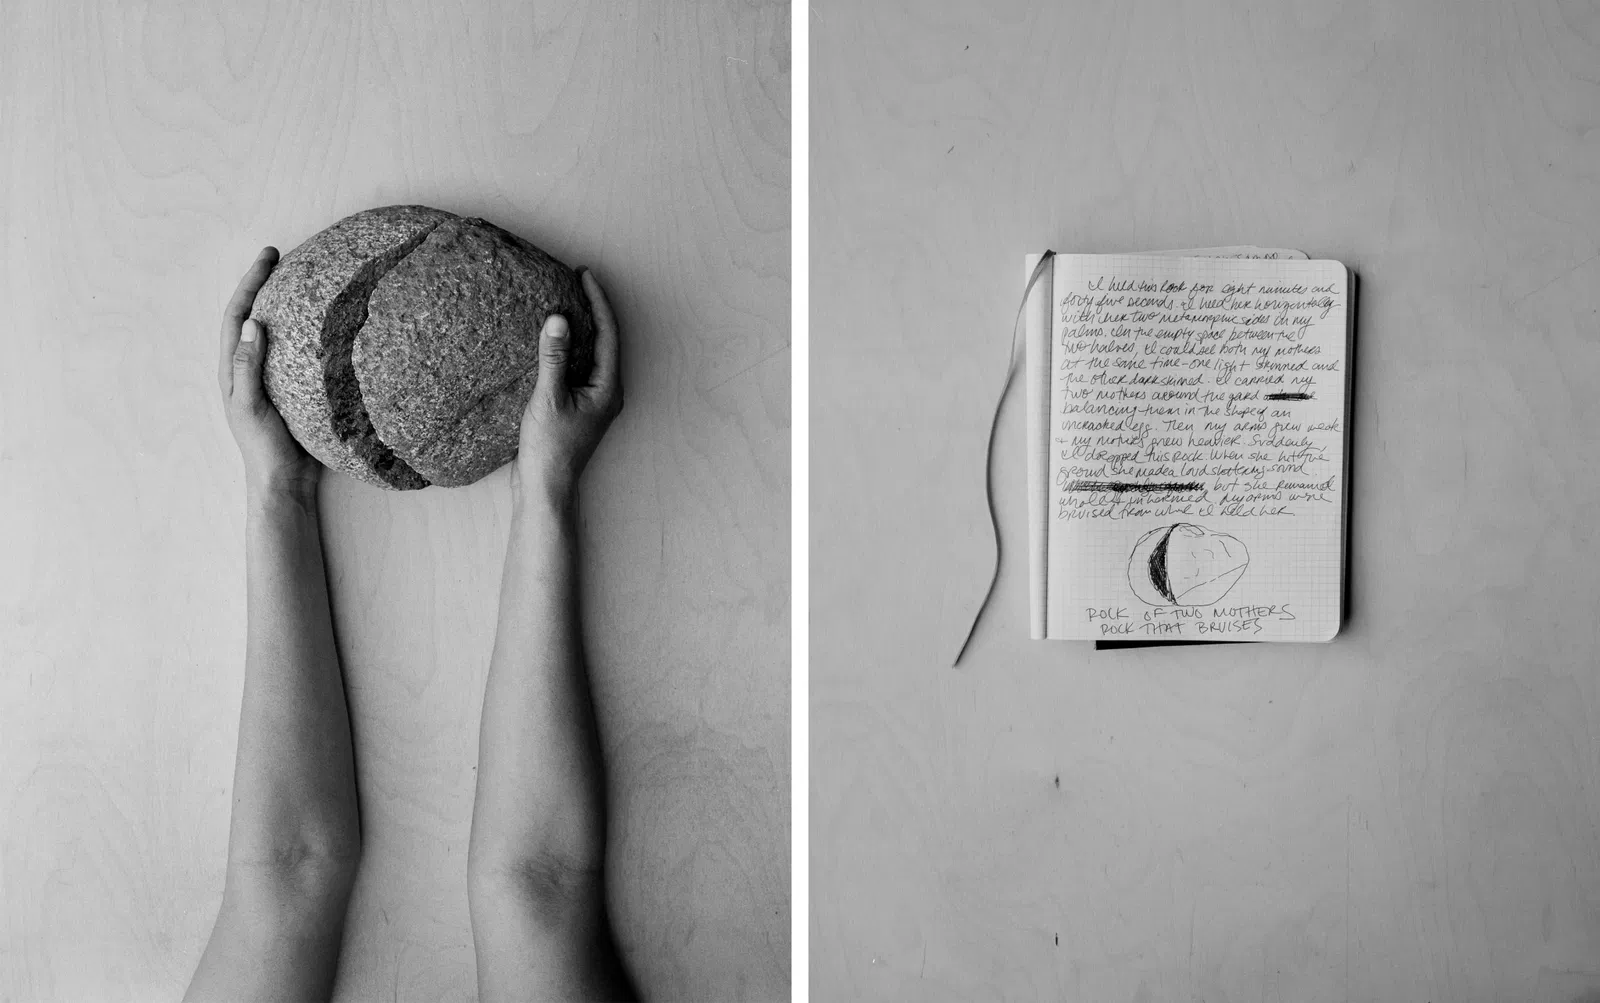 I held this rock for eight minutes and
forty five seconds. I held her horizontally
with her two metamorphic sides in my
palms. In the empty space between the
two halves, I could see both my mothers
at the same time - one light skinned and
the other dark skinned. I carried my
two mothers around the yard
balancing them in the shape of an
uncracked egg. Then my arms grew weak
+ my mothers grew heavier. Suddenly,
I dropped this rock. When she hit the
ground she made a loud sound
but she remained
whole & unharmed. My arms were
bruised from where I held her.
ROCK OF TWO MOTHERS
ROCK THAT BRUISES